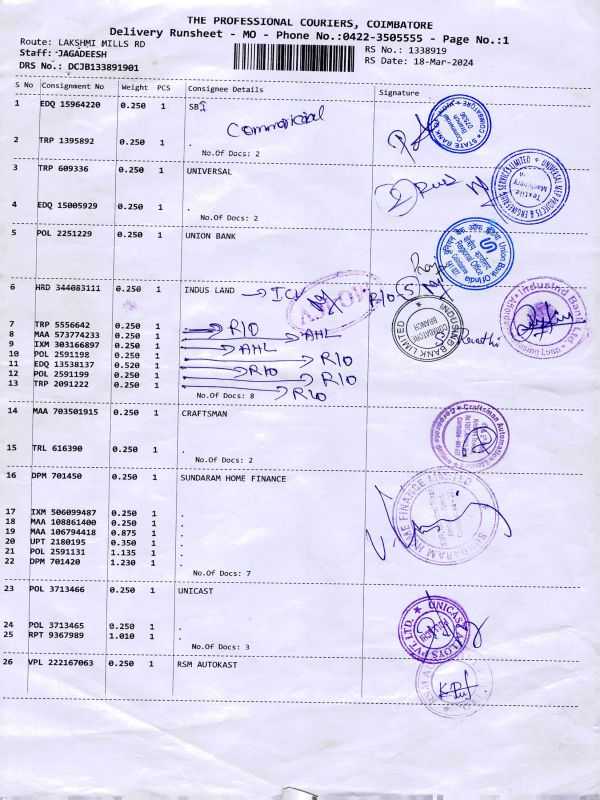 THE PROFESSIONAL COURIERS, COIMBATORE
Delivery Runsheet - MO - Phone No.:0422-3505555 - Page No.:1
Route: LAKSHMI MILLS RD
RS No.: 1338919
Staff: JAGADEESH
RS Date: 18-Mar-2024
DRS No.: DCJB133891901
S No Consignment No Weight PCS Consignee Details Signature
1 EDQ 15964220 0.250 1 SBI
Commercial
2 TRP 1395892 0.250 1 .
No.Of Docs: 2
3 TRP 609336 0.250 1 UNIVERSAL
4 EDQ 15005929 0.250 1 .
No.Of Docs: 2
5 POL 2251229 0.250 1 UNION BANK
6 HRD 344083111 0.250 1 INDUS LAND
7 TRP 5556642 0.250 1 R/O
8 MAA 573774233 0.250 1 AHL
9 IXM 303166897 0.250 1 AHL
10 POL 2591198 0.250 1 R/O
11 EDQ 13538137 0.520 1 R/O
12 POL 2591199 0.250 1 R/O
13 TRP 2091222 0.250 1 R/O
No.Of Docs: 8
14 MAA 703501915 0.250 1 CRAFTSMAN
15 TRL 616390 0.250 1 .
No.Of Docs: 2
16 DPM 701450 0.250 1 SUNDARAM HOME FINANCE
17 IXM 506099487 0.250 1 .
18 MAA 108861400 0.250 1 .
19 MAA 106794418 0.875 1 .
20 UPT 2180195 0.350 1 .
21 POL 2591131 1.135 1 .
22 DPM 701420 1.230 1 .
No.Of Docs: 7
23 POL 3713466 0.250 1 UNICAST
24 POL 3713465 0.250 1 .
25 RPT 9367989 1.010 1 .
No.Of Docs: 3
26 VPL 222167063 0.250 1 RSM AUTOKAST
STATE BANK OF INDIA
Commercial Branch
07536
COIMBATORE
UNIVERSAL MEP PROJECTS & ENGINEERING SERVICES LIMITED
Textile Machinery
Union Bank Of India
Regional Office
INDUSIND BANK LIMITED
COIMBATORE BRANCH
IndusInd Bank Ltd
Craftsman Automation Limited
SUNDARAM HOME FINANCE LIMITED
UNICAST ALLOYS PVT. LTD.